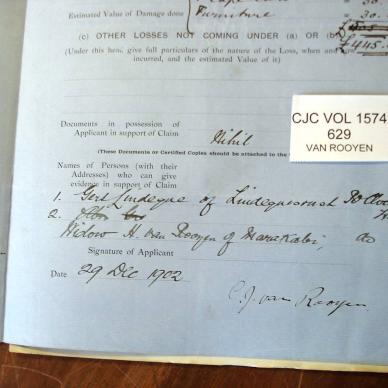 Estimated Value of Damage done
Furniture
30.
30.
£445.
(c) OTHER LOSSES NOT COMING UNDER (a) OR (b)
(Under this head, give full particulars of the nature of the Loss, when and how
incurred, and the estimated value of it)
CJC VOL 1574
629
VAN ROOYEN
Documents in possession of
Applicant in support of Claim
Nihil
(These Documents or Certified Copies should be attached to the
Names of Persons (with their
Addresses) who can give
evidence in support of Claim
1. Gert Lindeque of Lindequesrust
2.
Widow H. van Rooyen of Marakabi, do
Signature of Applicant
Date 29 Dec 1902
C. J. van Rooyen.